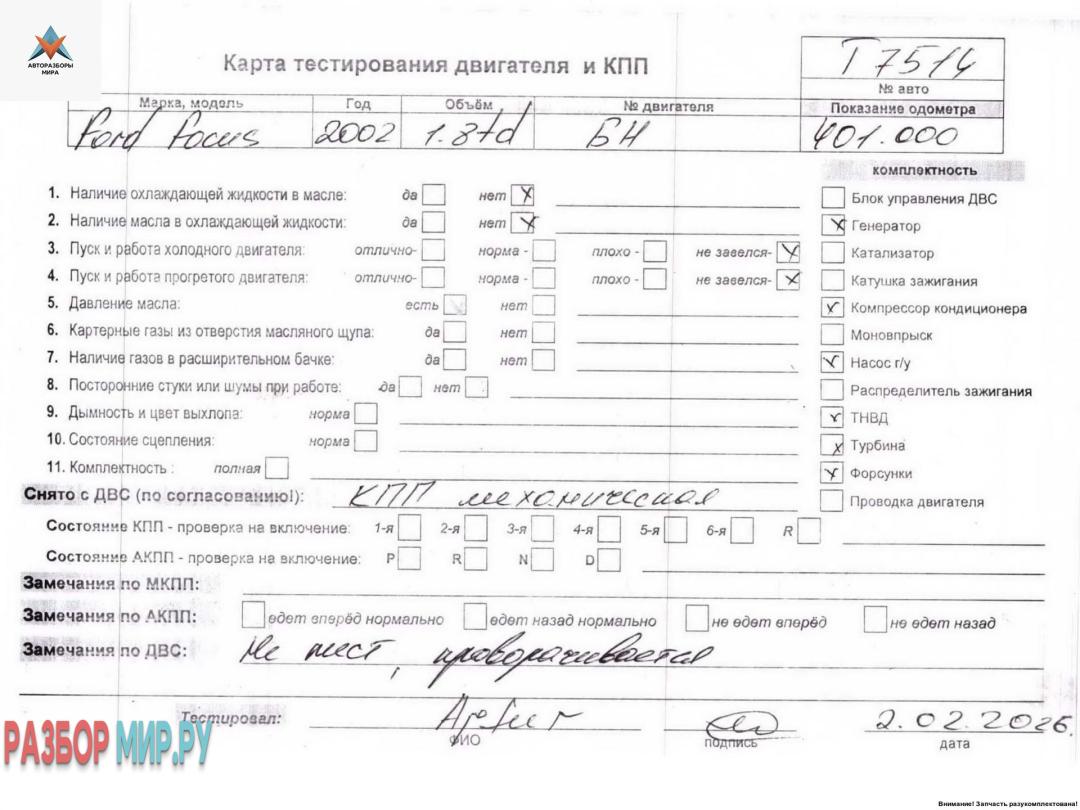 АВТОРАЗБОРЫ
МИРА
Карта тестирования двигателя и КПП
Т 7514
№ авто
Марка, модель Год Объём № двигателя Показание одометра
Ford Focus 2002 1.8td БН 401.000
комплектность
1. Наличие охлаждающей жидкости в масле: да нет x
Блок управления ДВС
2. Наличие масла в охлаждающей жидкости: да нет x
x Генератор
3. Пуск и работа холодного двигателя: отлично- норма - плохо - не завелся- x
Катализатор
4. Пуск и работа прогретого двигателя: отлично- норма - плохо - не завелся- x
Катушка зажигания
5. Давление масла: есть нет
Компрессор кондиционера
6. Картерные газы из отверстия масляного щупа: да нет
Моновпрыск
7. Наличие газов в расширительном бачке: да нет
Насос г/у
8. Посторонние стуки или шумы при работе: да нет
Распределитель зажигания
9. Дымность и цвет выхлопа: норма
ТНВД
10. Состояние сцепления: норма
Турбина
11. Комплектность : полная
Форсунки
Снято с ДВС (по согласованию!): КПП механическая
Проводка двигателя
Состояние КПП - проверка на включение: 1-я 2-я 3-я 4-я 5-я 6-я R
Состояние АКПП - проверка на включение: P R N D
Замечания по МКПП:
Замечания по АКПП: едет вперёд нормально едет назад нормально не едет вперёд не едет назад
Замечания по ДВС: Не тест, проворачивается
Тестировал: 2.02.2026.
ФИО подпись дата
РАЗБОР МИР.РУ
Внимание! Запчасть разукомплектована!